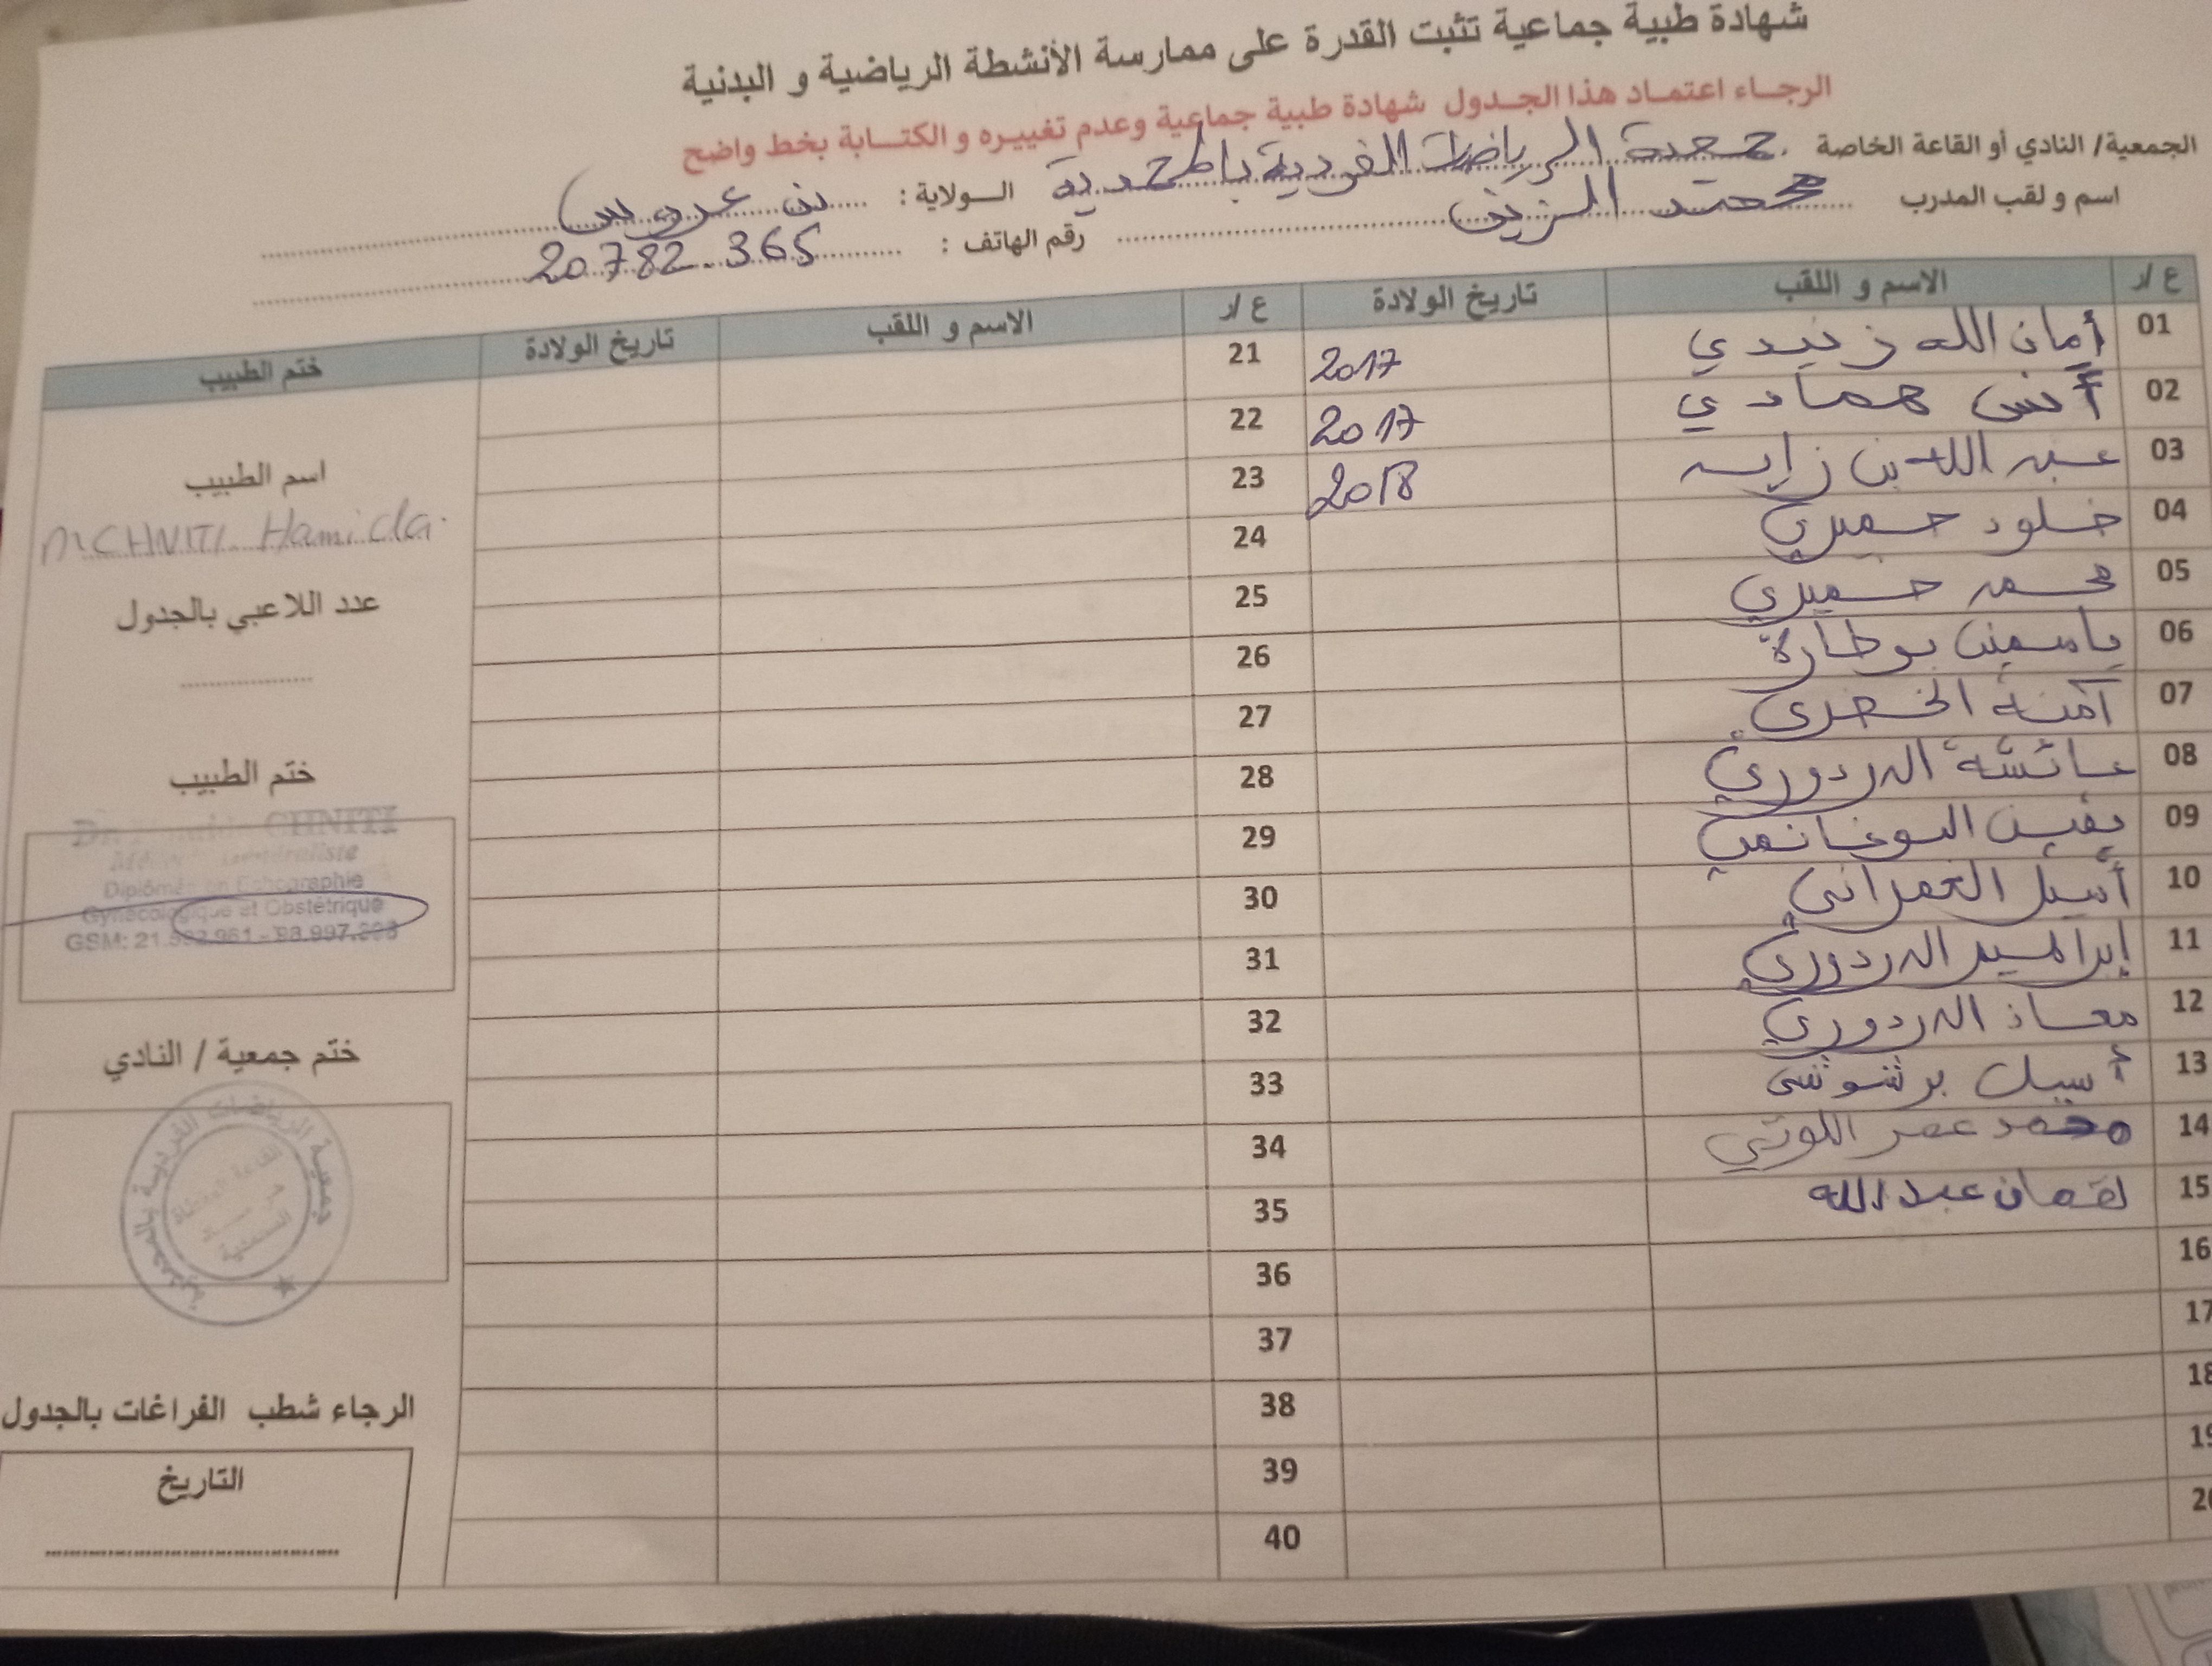 شهادة طبية جماعية تثبت القدرة على ممارسة الأنشطة الرياضية و البدنية
الرجاء اعتماد هذا الجدول شهادة طبية جماعية وعدم تغييره و الكتابة بخط واضح
الجمعية/ النادي أو القاعة الخاصة جمعية الرياضات الفردية بالمحمدية السولاية : بن عروس
اسم و لقب المدرب محمد الزين رقم الهاتف : 20782.365
ع /ر الاسم و اللقب تاريخ الولادة ع /ر الاسم و اللقب تاريخ الولادة ختم الطبيب
01 أمان الله زنيدي 2017 21
02 أنس همادي 2017 22
03 عبد الله بن زايد 2018 23
04 خلود حميدي 24
05 محمد حميدي 25
06 ياسمين بوطارة 26
07 آمنة الخضري 27
08 عائشة الدردوري 28
09 يقين البوغانمي 29
10 أسيل العمراني 30
11 إبراهيم الدردوري 31
12 معاذ الدردوري 32
13 أسيل برشوشي 33
14 محمد عمر اللوتي 34
15 لقمان عبد الله 35
16 36
17 37
18 38
19 39
20 40
اسم الطبيب
CHNITI Hamida
عدد اللاعبي بالجدول
ختم الطبيب
Dr. CHNITI
Diplômé en Echographie
Gynécologique et Obstétrique
GSM: 21
ختم جمعية / النادي
جمعية الرياضات الفردية بالمحمدية
الرجاء شطب الفراغات بالجدول
التاريخ